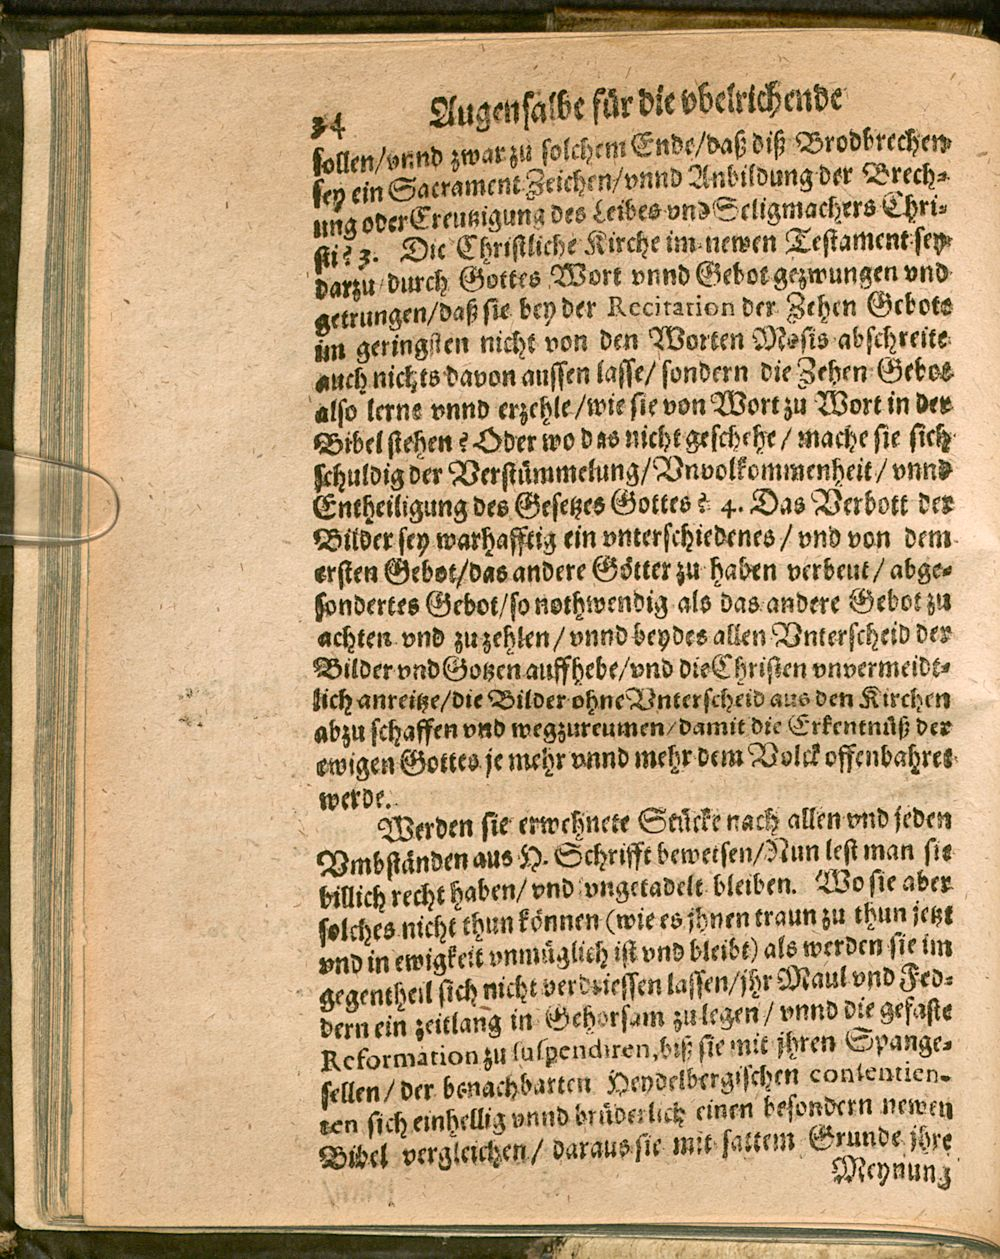 34 Augensalbe für die vbelrichende
sollen/vnnd zwar zu solchem Ende/daß diß Brodbrechen
sey ein Sacrament Zeichen/vnnd Anbildung der Brech-
ung oder Creutzigung des Leibes vnd Seligmachers Chri-
sti? 3. Die Christliche Kirche im newen Testament sey
darzu durch Gottes Wort vnnd Gebot gezwungen vnd
getrungen/daß sie bey der Recitation der Zehen Gebote
im geringsten nicht von den Worten Mosis abschreite
auch nichts davon aussen lasse/ sondern die Zehen Gebot
also lerne vnnd erzehle/wie sie von Wort zu Wort in der
Bibel stehen? Oder wo das nicht geschehe/ mache sie sich
schuldig der Verstümmelung/Vnvolkommenheit/ vnnd
Entheiligung des Gesetzes Gottes? 4. Das Verbott der
Bilder sey warhafftig ein vnterschiedenes/ vnd von dem
ersten Gebot/das andere Götter zu haben verbeut/ abge-
sondertes Gebot/so nothwendig als das andere Gebot zu
achten vnd zu zehlen/ vnnd beydes allen Vnterscheid der
Bilder vnd Gotzen auffhebe/vnd die Christen vnvermeidt-
lich anreitze/die Bilder ohne Vnterscheid aus den Kirchen
abzu schaffen vnd wegzureumen/damit die Erkentnüß der
ewigen Gottes je mehr vnnd mehr dem Volck offenbahret
werde.
Werden sie erwehnete Stücke nach allen vnd jeden
Vmbständen aus H. Schrifft beweisen/Nun lest man sie
billich recht haben/ vnd vngetadelt bleiben. Wo sie aber
solches nicht thun können (wie es jhnen traun zu thun jetzt
vnd in ewigkeit vnmüglich ist vnd bleibt) als werden sie im
gegentheil sich nicht verdriessen lassen/jhr Maul vnd Fed-
dern ein zeitlang in Gehorsam zu legen/ vnnd die gefaste
Reformation zu suspendiren, biß sie mit jhren Spange-
sellen/ der benachbarten Heydelbergischen contentien-
ten sich einhellig vnnd brüderlich einen besondern newen
Bibel vergleichen/ daraus sie mit sattem Grunde jhre
Meynung